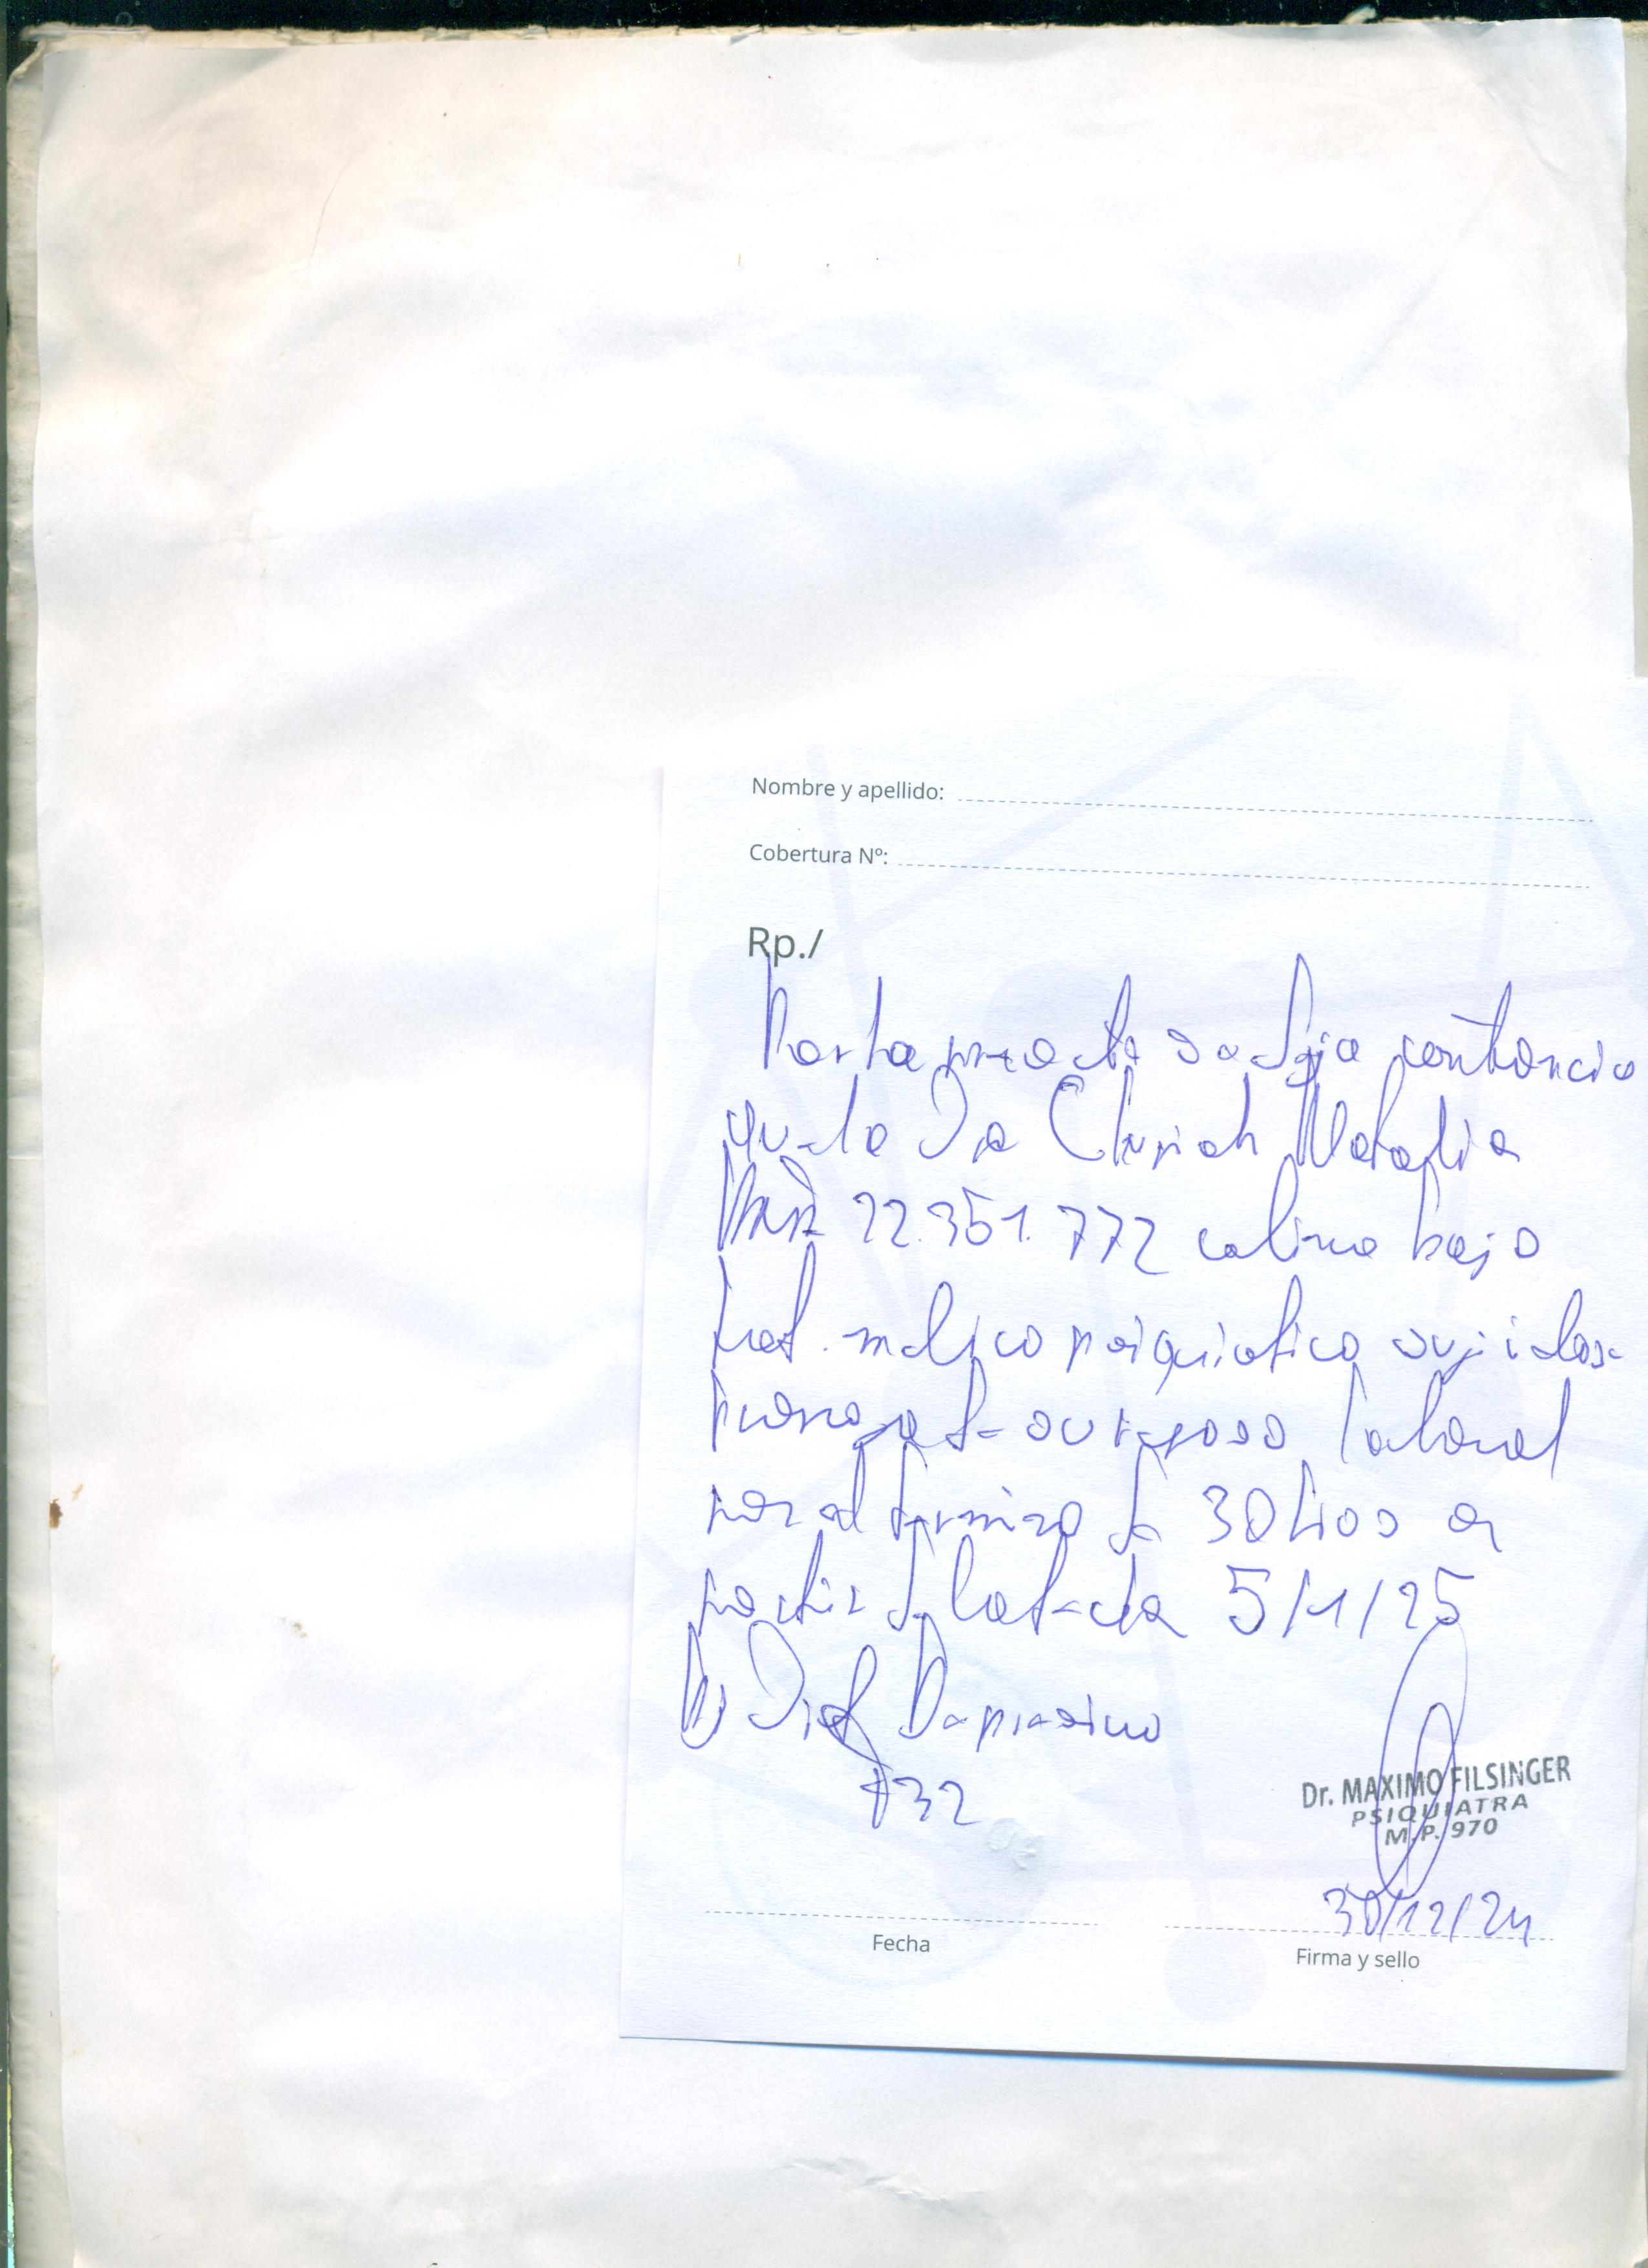 Nombre y apellido:
Cobertura Nº:
Rp./
Por la presente se deja constancia
que la Sra Natalia
22.351.772 continua bajo
trat. medico psiquiatrico sugiriendose
prorroga de su reposo laboral
por el termino de 30 dias a
partir de la fecha 5/1/25
Dg Trast Depresivo
F32
Dr. MAXIMO FILSINGER
PSIQUIATRA
M.P. 970
30/12/24
Fecha
Firma y sello